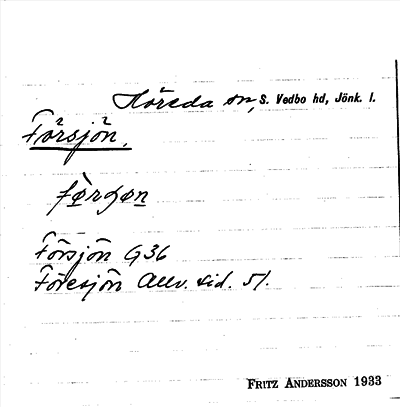 Höreda sn, S. Vedbo hd, Jönk. l.
Försjön,
Försjön G36
Föresjön Allv. sid. 51.
FRITZ ANDERSSON 1933